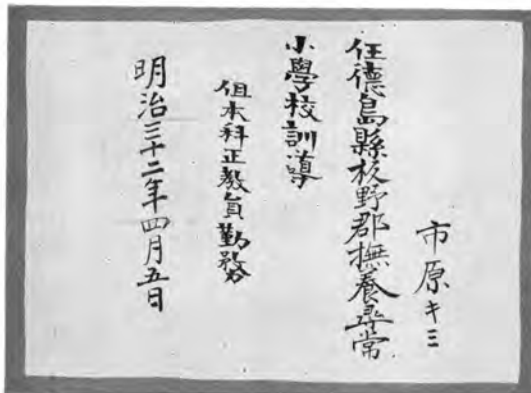 市原キミ
任德島縣板野郡撫養尋常
小學校訓導
但本科正教員勤務
明治三十二年四月五日